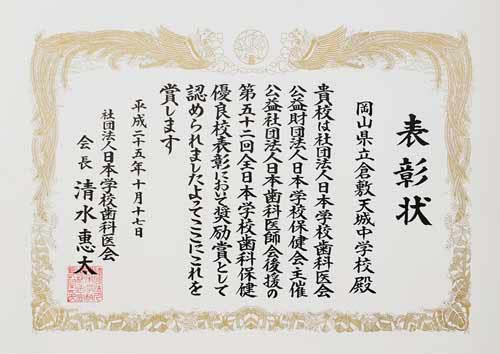 表彰状
岡山県立倉敷天城中学校殿
貴校は社団法人日本学校歯科医会
公益財団法人日本学校保健会主催
公益社団法人日本歯科医師会後援の
第五十二回全日本学校歯科保健
優良校表彰において奨励賞として
認められましたよってここにこれを
賞します
平成二十五年十月十七日
社団法人日本学校歯科医会
会長 清水惠太